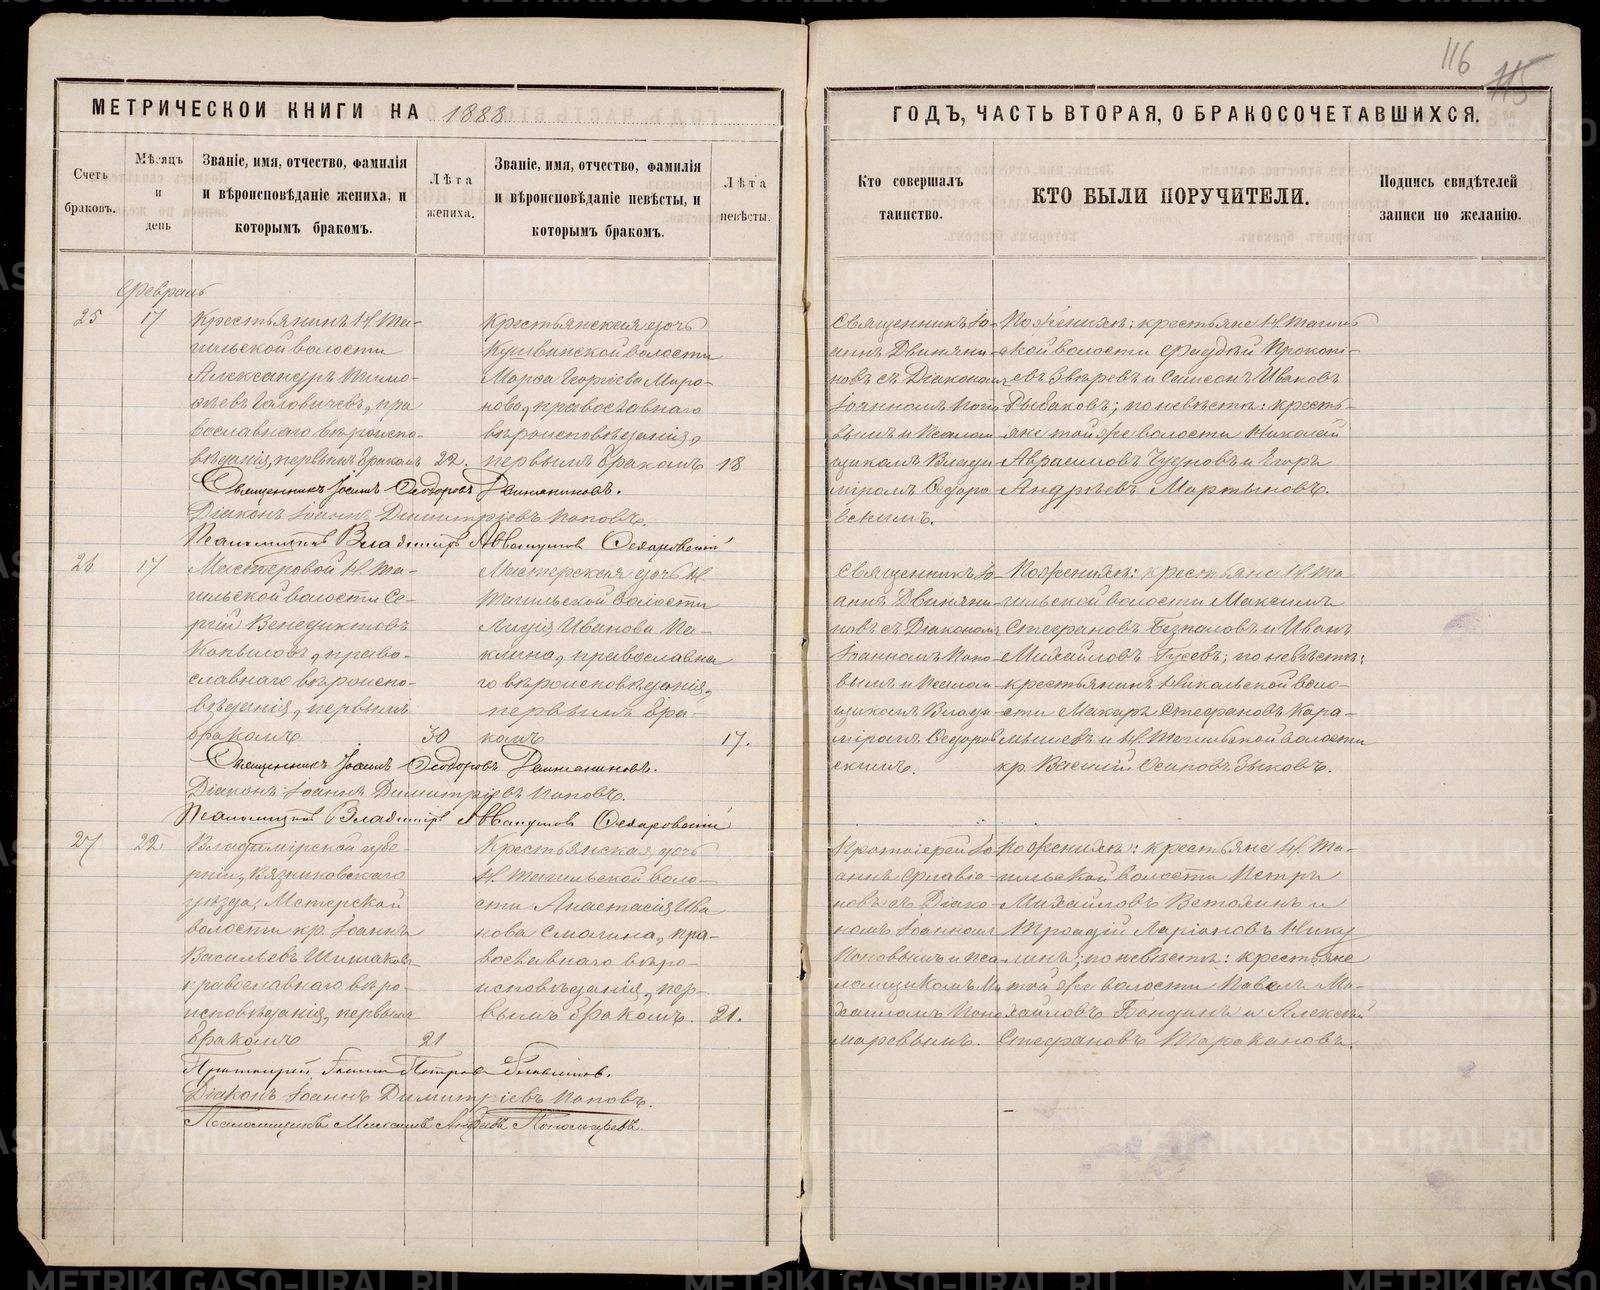 116
115
МЕТРИЧЕСКОЙ КНИГИ НА 1888
ГОДЪ, ЧАСТЬ ВТОРАЯ, О БРАКОСОЧЕТАВШИХСЯ.
Счетъ
браковъ.
Мѣсяцъ
и
день
Званіе, имя, отчество, фамилія
и вѣроисповѣданіе жениха, и
которымъ бракомъ.
Лѣта
жениха.
Званіе, имя, отчество, фамилія
и вѣроисповѣданіе невѣсты, и
которымъ бракомъ.
Лѣта
невѣсты.
Кто совершалъ
таинство.
КТО БЫЛИ ПОРУЧИТЕЛИ.
Подпись свидѣтелей
записи по желанію.
Февраль
25
17
Крестьянинъ Н. Та-
гильской волости
Александръ Тимо-
ѳѣевъ Головичевъ, пра
вославнаго вѣроиспо-
вѣданія, первымъ бракомъ
22.
Крестьянская дочь
Кушвинской волости
Марѳа Георгіева Миро-
нова, православнаго
вѣроисповѣданія,
первымъ бракомъ
18
Священникъ Іо-
аннъ
новъ съ Діакономъ
Іоанномъ Попо
вымъ и Псалом
щикомъ Влади
міромъ Ѳедоро
вскимъ.
По женихѣ: крестьяне Н. Тагиль
ской волости Ѳаддей Прокопі-
евъ Звѣревъ и Самсонъ Ивановъ
Рыбаковъ; по невѣстѣ: кресть-
яне той же волости Николай
Авраамовъ Чудновъ и Егоръ
Андрѣевъ Мартыновъ.
Священникъ Іоаннъ Ѳеодоровъ
Діаконъ Іоаннъ Димитріевъ Поповъ.
Псаломщикъ Владиміръ
26
17
Мастеровой Н. Та-
гильской волости Се-
ргій Венедиктовъ
Копыловъ, право-
славнаго вѣроиспо-
вѣданія, первымъ
бракомъ
30
Мастерская дочь Н.
Тагильской волости
Лидія Иванова Па-
клина, православна
го вѣроисповѣданія,
первымъ бра-
комъ
17.
Священникъ Іо-
аннъ
новъ съ Діакономъ
Іоанномъ Попо-
вымъ и Псалом
щикомъ Влади
міромъ Ѳедоров
скимъ.
По женихѣ: крестьяне Н. Та-
гильской волости Максимъ
Стефановъ Безпаловъ и Иванъ
Михайловъ Гусевъ; по невѣстѣ:
крестьянинъ Никольской воло-
сти Макаръ Стефановъ Кара-
мышевъ и Н. Тагильской волости
кр. Василій Осиповъ Зыковъ.
Священникъ Іоаннъ Ѳеодоровъ
Діаконъ Іоаннъ Димитріевъ Поповъ.
Псаломщикъ Владиміръ
27
22
Владимірской губе-
рніи, Вязниковскаго
уѣзда, Мстерской
волости кр. Іоаннъ
Васильевъ Шишаковъ
православнаго вѣро-
исповѣданія, первымъ
бракомъ
21
Крестьянская дочь
Н. Тагильской воло-
сти Анастасія Ива
нова Смагина, пра-
вославнаго вѣро-
исповѣданія, пер-
вымъ бракомъ.
21.
Протоіерей Іо-
аннъ Флавіа-
новъ съ Діако-
номъ Іоанномъ
Поповымъ и Пса
ломщикомъ Ми
хаиломъ Поно
маревымъ.
По женихѣ: крестьяне Н. Та-
гильской волости Петръ
Михайловъ Ветошинъ и
Ларіоновъ
по невѣстѣ: крестьяне
той же волости Павелъ Ми-
хайловъ Бондинъ и Алексѣй
Стефановъ Таракановъ.
Протоіерей Іоаннъ Петровъ Флавіановъ.
Діаконъ Іоаннъ Димитріевъ Поповъ.
Псаломщикъ Михаилъ Андреевъ Пономаревъ
METRIKI.GASO-URAL.RU